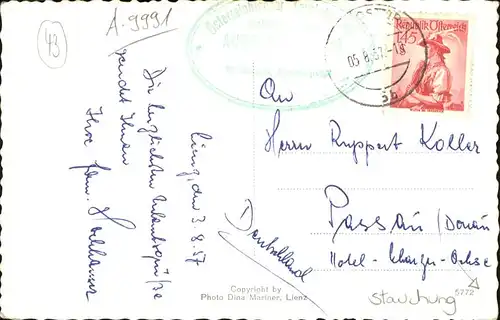 43
A-9991
05.8.57.-18
3b
Republik Österreich
1.45
Lienz, den 3.8.57
Die herzlichsten Urlaubsgrüße
sendet Ihnen
Ihre Fam.
An
Herrn Ruppert Koller
Passau/Donau
Hotel-
Ochse
Deutschland
Stauchung
5772
Copyright by
Photo Dina Mariner, Lienz